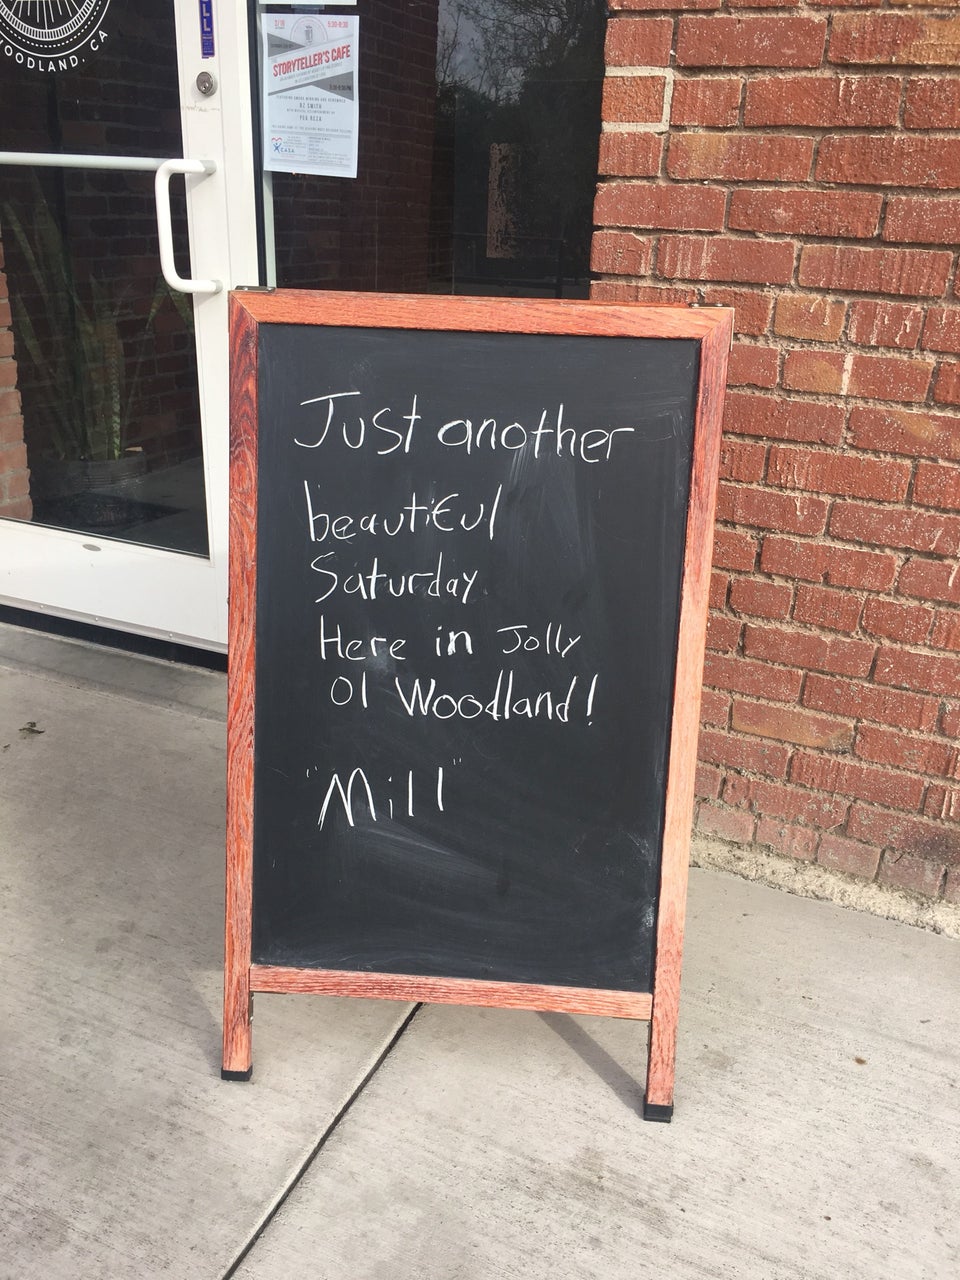 WOODLAND, CA
3/19
5:30-8:30
STORYTELLER'S CAFE
AZ SMITH
CASA
Just another
beautiful
Saturday
Here in Jolly
Ol Woodland!
"Mill"